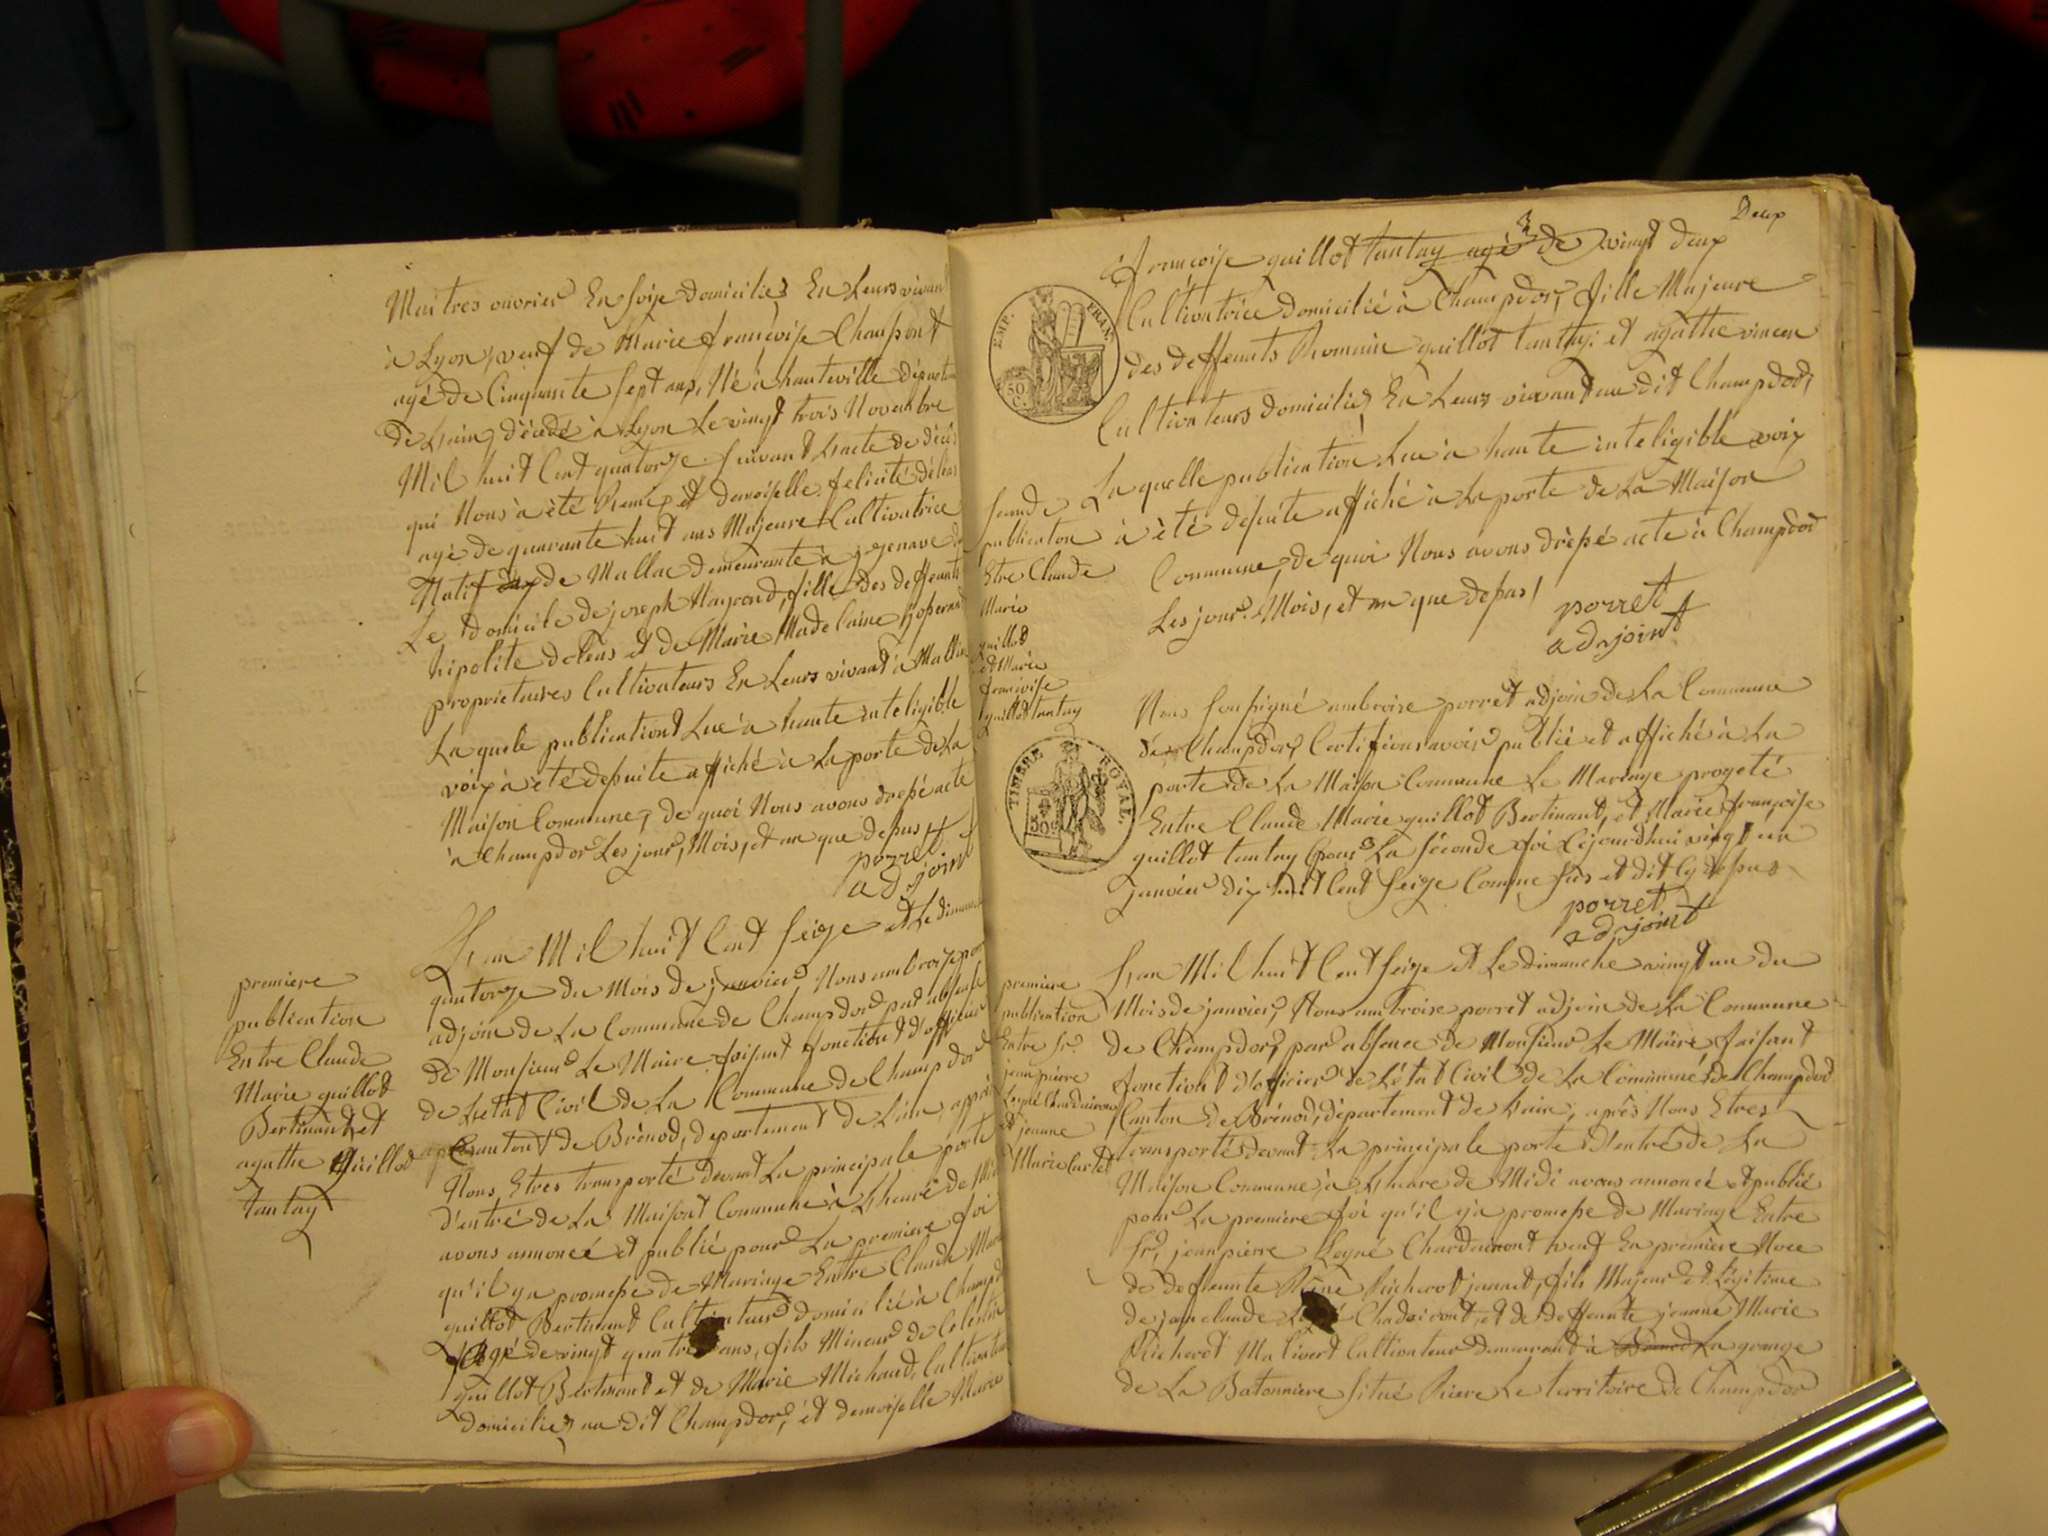 Maitres ouvrier En soije domiciliez En Leurs vivan
à Lyon, veuf de Marie françoise Chaupont
agé de Cinquante sept ans, Né à hauteville départem
de L'ain, décédé à Lyon Le vingt trois Novembre
Mil huit Cent quatorze suivant L'acte de décès
qui Nous à été Remis, et demoiselle felicité déléas
agé de quarante huit ans Majeure Cultivatrice
Natif de Mallac demeurante à
Le domicile de joseph, fille des deffeunts
hipolite deléas et de Marie Madelaine
proprietaires Cultivateurs En Leurs vivant à
La quele publication Lue à haute inteligible
voix à été desuite affiché à La porte de La
Maison Commune, de quoi Nous avons dressé acte
à Champdor Les jour, Mois, et an que dessus
porret
adjoint
premiere
publication
Entre Claude
Marie guillot
Bertinand et
agathe guillot
tantay
L'an Mil huit Cent seize et Le dimanche
quatorze du Mois de janvier, Nous ambroize por
adjoin de La Commune de Champdor par absense
de Monsieur Le Maire faisant fonction d'officier
de L'etat Civil de La Commune de Champdor
Canton de Brénod, departement de L'ain, après
Nous Etres transporté devant La principale porte
d'entré de La Maison Commune à L'heure de Midi
avons annoncé et publié pour La premiere foi
qu'il y a promesse de Mariage Entre Claude Marie
guillot Bertinand Cultivateur domicilié à Champd
agé de vingt quatre ans, fils Mineur de Celestin
guillot Bertinand et de Marie Michaud, Cultivateur
domiciliez au dit Champdor, et demoiselle Marie
Deux
françoise guillot tantay agé de vingt deux
Cultivatrice domicilié à Champdor, fille Majeure
des deffeunts Romain guillot tantay et agathe vincen
Cultivateurs domiciliez En Leurs vivant au dit Champdor,
La quelle publication Lue à haute inteligible voix
à été desuite affiché à La porte de La Maison
Commune, de quoi Nous avons dressé acte à Champdor
Les jour, Mois, et an que dessus
porret
adjoint
EMP. FRAN.
50 C.
seconde
publication
Etre Claude
Marie
guillot
et Marie
françoise
guillot tantay
TIMBRE ROYAL.
50 c
Nous soussigné ambroise porret adjoin de La Commune
de Champdor, Certifions avoir publié et affiché à La
porte de La Maison Commune Le Mariage progeté
Entre Claude Marie guillot Bertinant, et Marie françoise
guillot tantay pour La séconde foi Cejourd'hui vingt un
janvier dix huit Cent seize Comme fus et dit Cy dessus
porret
adjoint
premiere
publication
Entre Sr
jean pierre
Legné Chardeiron
et jeanne
Marie Carlet
L'an Mil huit Cent seize et Le dimanche vingt un du
Mois de janvier, Nous ambroise porret adjoin de La Commune
de Champdor, par absence de Monsieur Le Maire faisant
fonction d'officier de L'état Civil de La Commune de Champdor
Canton de Brénod, département de L'ain, après Nous Etres
transporté devant La principale porte d'entré de La
Maison Commune, à L'heure de Midi avons annoncé et publié
pour La premiere foi qu'il y à promesse de Mariage Entre
Sr, jean pierre Legné veuf En premiere Noce
de deffeunte Richerot jannet, fils Majeur et Légitime
de jean claude et de deffeunte jeanne Marie
Richerot Mativert Cultivateur demeurant à La grange
de La Batonniere situé Riere Le territoire de Champdor